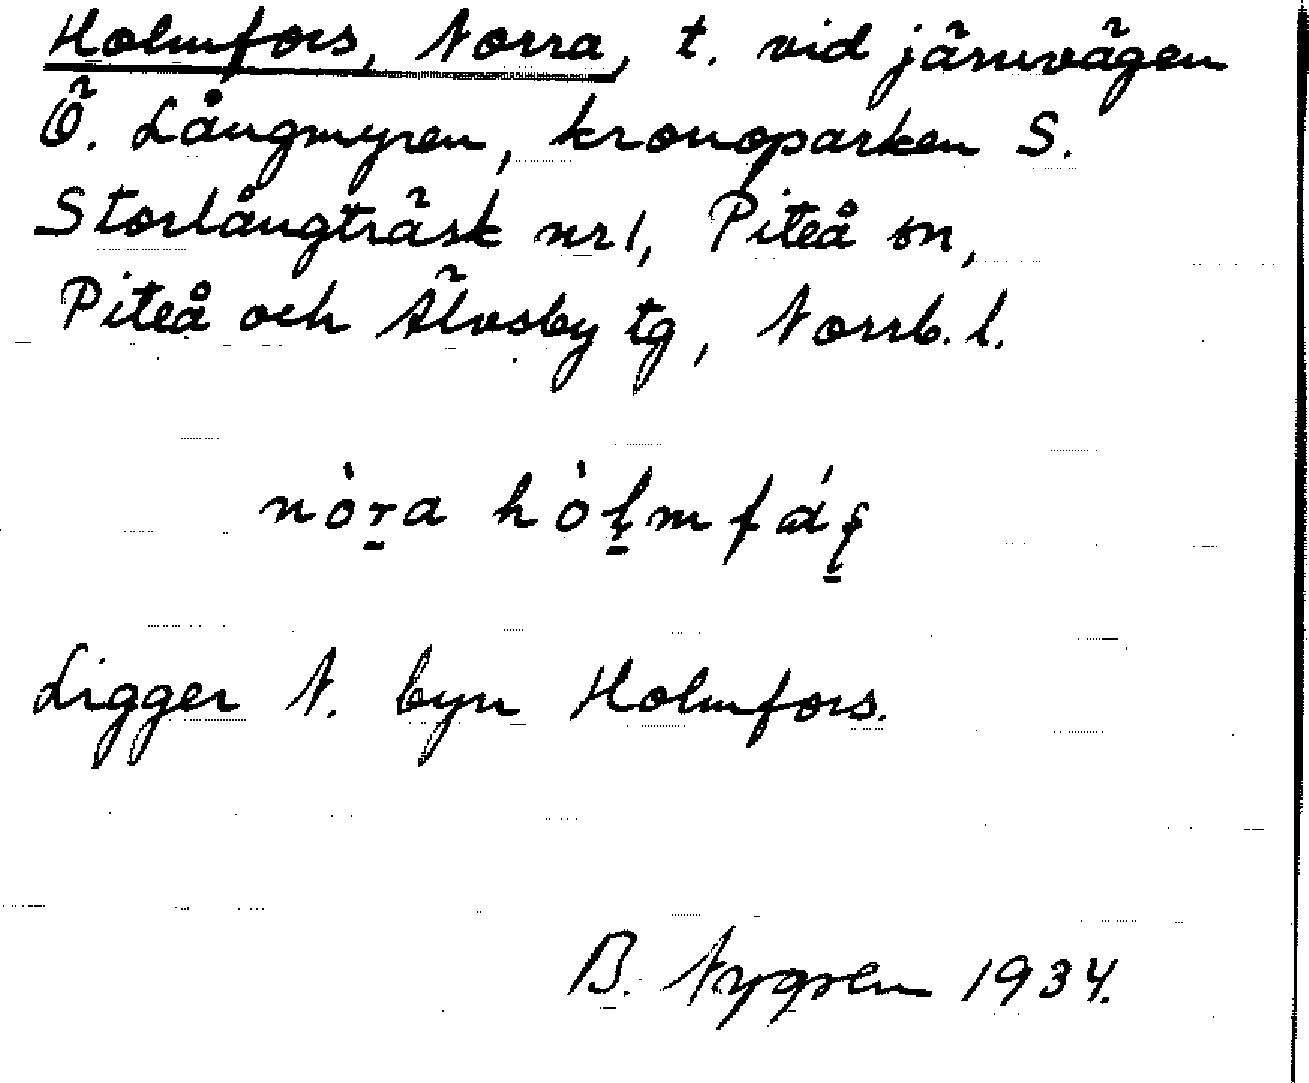 Holmfors, Norra, t. vid järnvägen
Ö. Långmyren, kronoparken S.
Storlångträsk nr 1, Piteå sn,
Piteå och Älvsby tg, Norrb. l.
nòr̲a hòl̲mfás̲
Ligger N. byn Holmfors.
B. Nygren 1934.